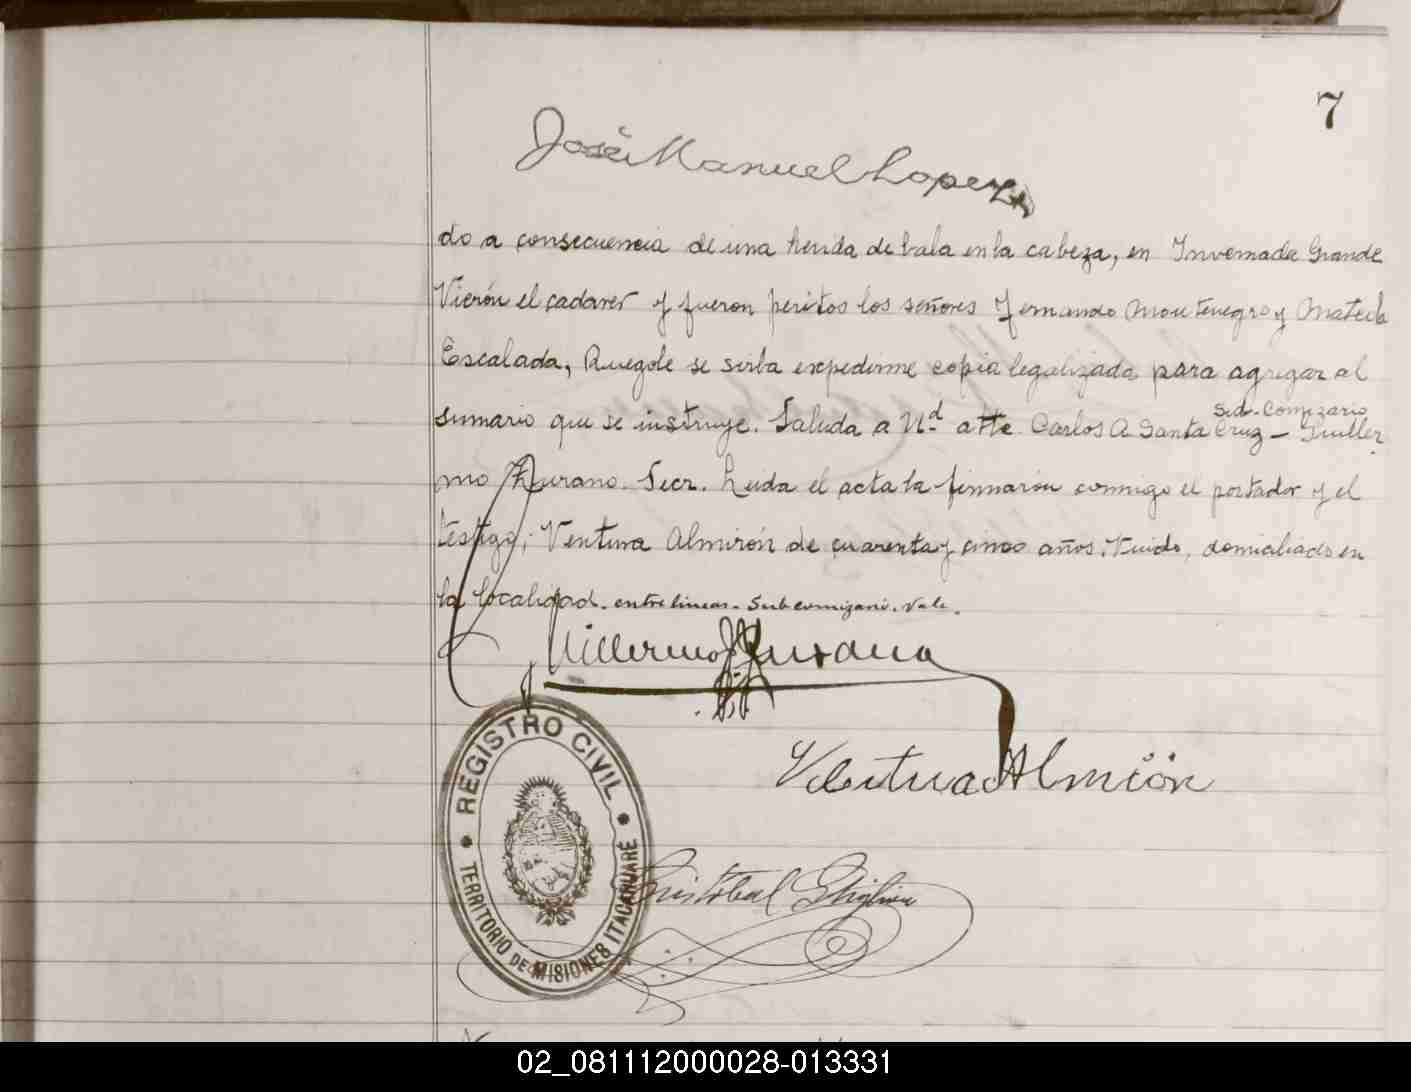 7
José Manuel Lopez
do a consecuencia de una herida de bala en la cabeza, en Invernada Grande
Vierón el cadaver y fueron peritos los señores Fernando Montenegro y Mateo
Escalada, Ruegole se sirba expedirme copia legalizada para agregar al
sumario que se instruye. Saluda a Ud. atte Carlos A Santa Cruz - Guiller
Sub-Comizario
mo Thurano. Secr. Leida el acta la firmarón conmigo el portador y el
testigo; Ventura Almirón de cuarenta y cinco años, Viudo, domiciliado en
la localidad. entre lineas. Sub comizario. Vale.
Guillermo
Ventura Almirón
Cristobal
REGISTRO CIVIL
TERRITORIO DE MISIONES ITACARUARÉ
02_081112000028-013331